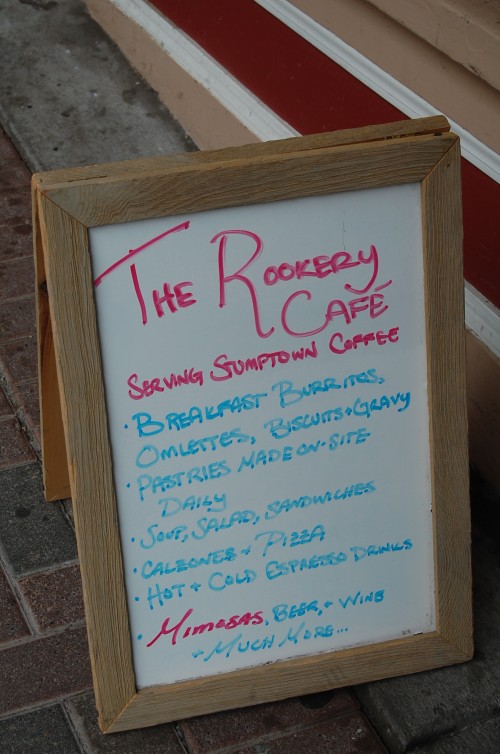 THE ROOKERY
CAFÉ
SERVING STUMPTOWN COFFEE
· BREAKFAST BURRITOS,
OMLETTES, BISCUITS + GRAVY
· PASTRIES MADE ON-SITE
DAILY
· SOUP, SALAD, SANDWICHES
· CALZONES + PIZZA
· HOT + COLD ESPRESSO DRINKS
· MIMOSAS, BEER, + WINE
+ MUCH MORE...